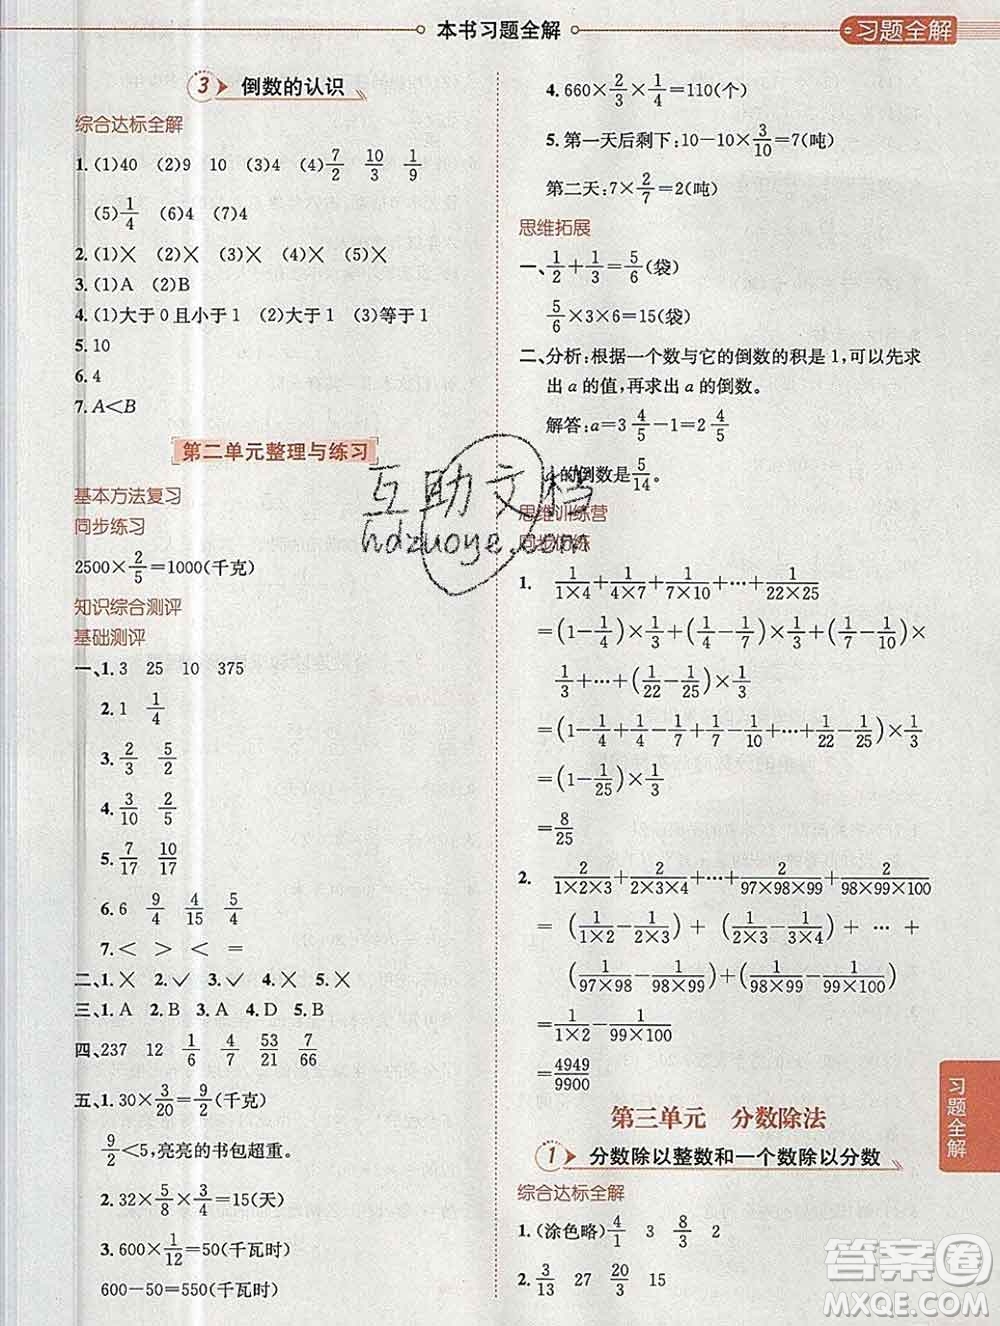 本书习题全解
习题全解
3 倒数的认识
综合达标全解
1. (1)40 (2)9 10 (3)4 (4)7/2 10/3 1/9
(5)1/4 (6)4 (7)4
2. (1)× (2)× (3)× (4)× (5)×
3. (1)A (2)B
4. (1)大于0且小于1 (2)大于1 (3)等于1
5. 10
6. 4
7. A<B
第二单元整理与练习
基本方法复习
同步练习
2500×2/5=1000(千克)
知识综合测评
基础测评
一、1. 3 25 10 375
2. 1 1/4
3. 2/3 5/2
4. 3/10 2/5
5. 7/17 10/17
6. 6 9/4 4/15 5/9
7. < > < =
二、1. × 2. ✓ 3. ✓ 4. × 5. ×
三、1. A 2. B 3. A 4. D 5. B
四、237 12 1/6 4/7 53/21 7/66
五、1. 30×3/20=9/2(千克)
9/2<5,亮亮的书包超重。
2. 32×5/8×3/4=15(天)
3. 600×1/12=50(千瓦时)
600-50=550(千瓦时)
4. 660×2/3×1/4=110(个)
5. 第一天后剩下:10-10×3/10=7(吨)
第二天:7×2/7=2(吨)
思维拓展
一、1/2+1/3=5/6(袋)
5/6×3×6=15(袋)
二、分析:根据一个数与它的倒数的积是1,可以先求
出a的值,再求出a的倒数。
解答:a=3 4/5-1=2 4/5
的倒数是5/14。
思维训练营
同步训练
1. 1/(1×4)+1/(4×7)+1/(7×10)+…+1/(22×25)
=(1-1/4)×1/3+(1/4-1/7)×1/3+(1/7-1/10)×
1/3+…+(1/22-1/25)×1/3
=(1-1/4+1/4-1/7+1/7-1/10+…+1/22-1/25)×1/3
=(1-1/25)×1/3
=8/25
2. 2/(1×2×3)+2/(2×3×4)+…+2/(97×98×99)+2/(98×99×100)
=(1/(1×2)-1/(2×3))+(1/(2×3)-1/(3×4))+…+
(1/(97×98)-1/(98×99))+(1/(98×99)-1/(99×100))
=1/(1×2)-1/(99×100)
=4949/9900
第三单元 分数除法
1 分数除以整数和一个数除以分数
综合达标全解
1. (涂色略)4/1 3 8/3 2
2. 3/13 27 20/3 15
习题全解
互助文档
hdzuoye.com
答案圈
MXQE.COM